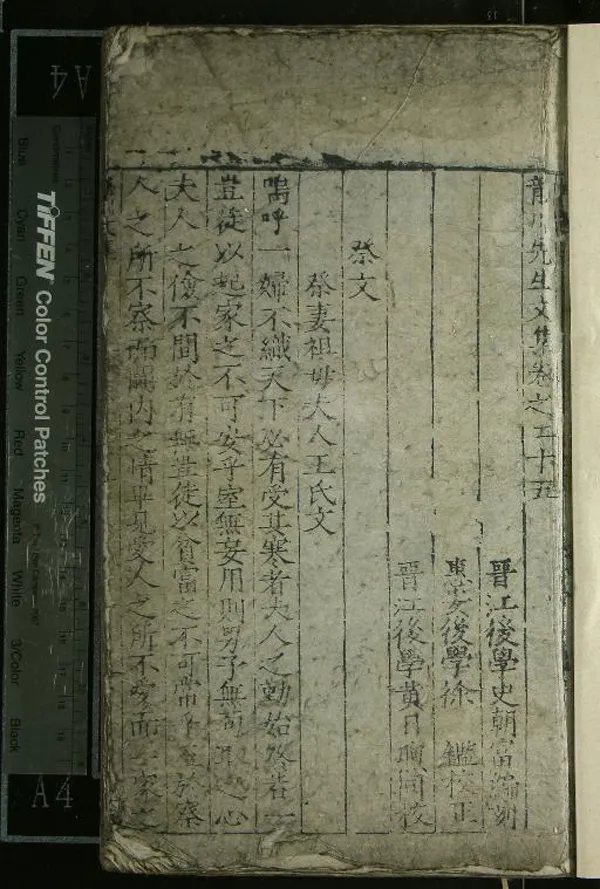 龍川先生文集卷之二十五
晉江後學史朝富編刻
惠安後學徐 鑑校正
晉江後學黃日 同校
祭文
祭妻祖母夫人王氏文
嗚呼一婦不織天下必有受其寒者夫人之勤始終若一
豈徒以起家之不可安乎室無妄用則男子無苟取之心
夫人之儉不間於有無豈徒以貧富之不可常乎至於察
人之所不察而閨內之情畢見愛人之所不愛而 察之
A4
TIFFEN Color Control Patches
Blue
Cyan
Green
Yellow
Red
Magenta
White
3/Color
Black
A4